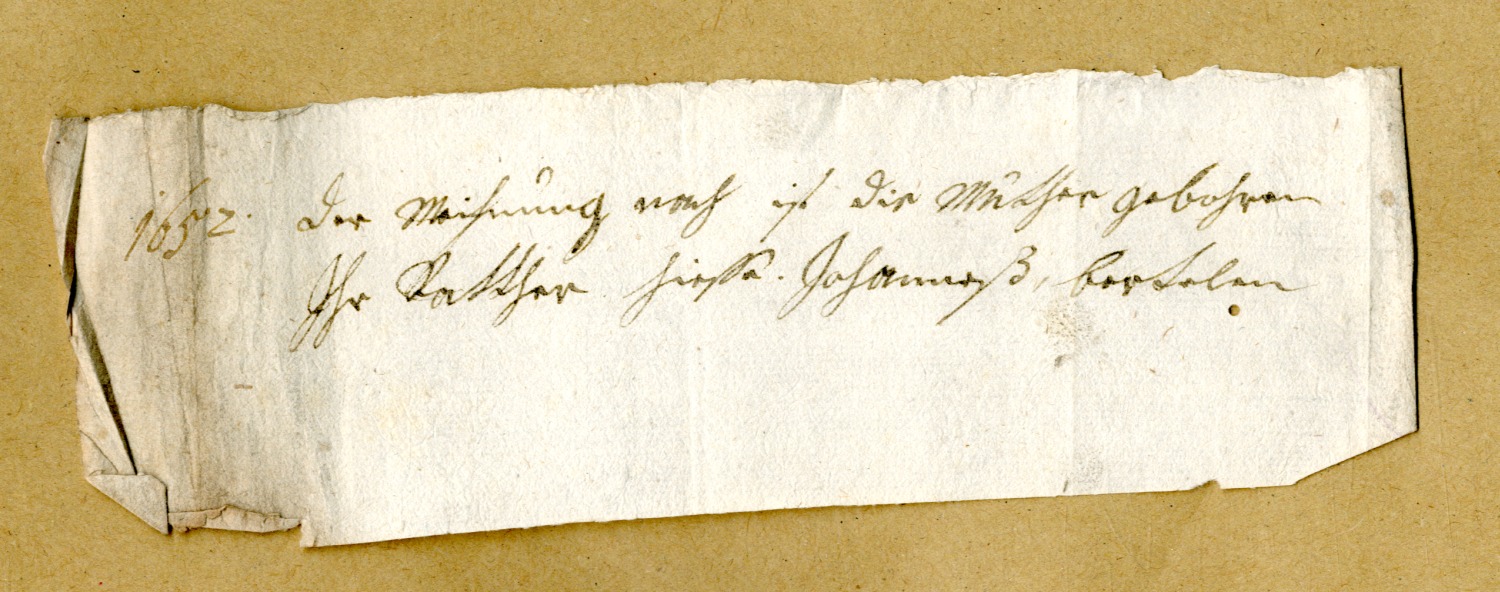 1652. Der Meihnung nach ist die Muther gebohren
Ihr Vatther hiesse. Johanneß, bertelen